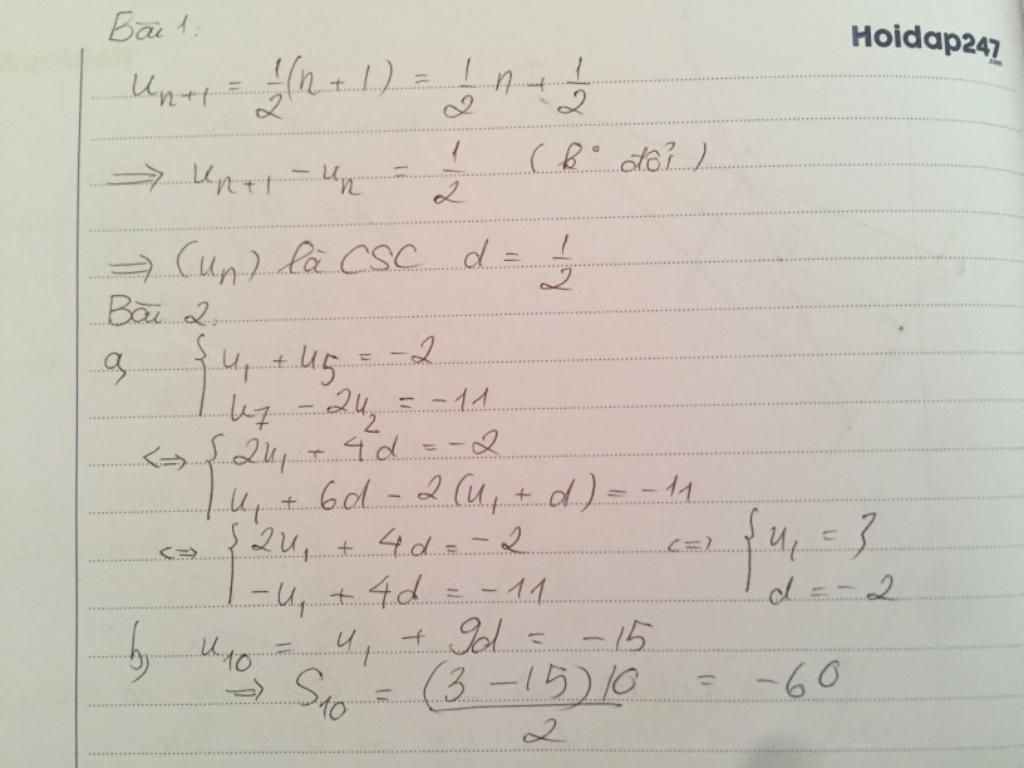 Bài 1:
Hoidap247
.com
u_{n+1} = \frac{1}{2}(n + 1) = \frac{1}{2} n + \frac{1}{2}
⇒ u_{n+1} - u_n = \frac{1}{2} (k° đổi)
⇒ (u_n) là CSC d = \frac{1}{2}
Bài 2.
a, { u_1 + u_5 = -2
u_7 - 2u_2 = -11
⇔ { 2u_1 + 4d = -2
u_1 + 6d - 2(u_1 + d) = -11
⇔ { 2u_1 + 4d = -2 ⇔ { u_1 = 3
-u_1 + 4d = -11 d = -2
b, u_{10} = u_1 + 9d = -15
⇒ S_{10} = \frac{(3 - 15)10}{2} = -60